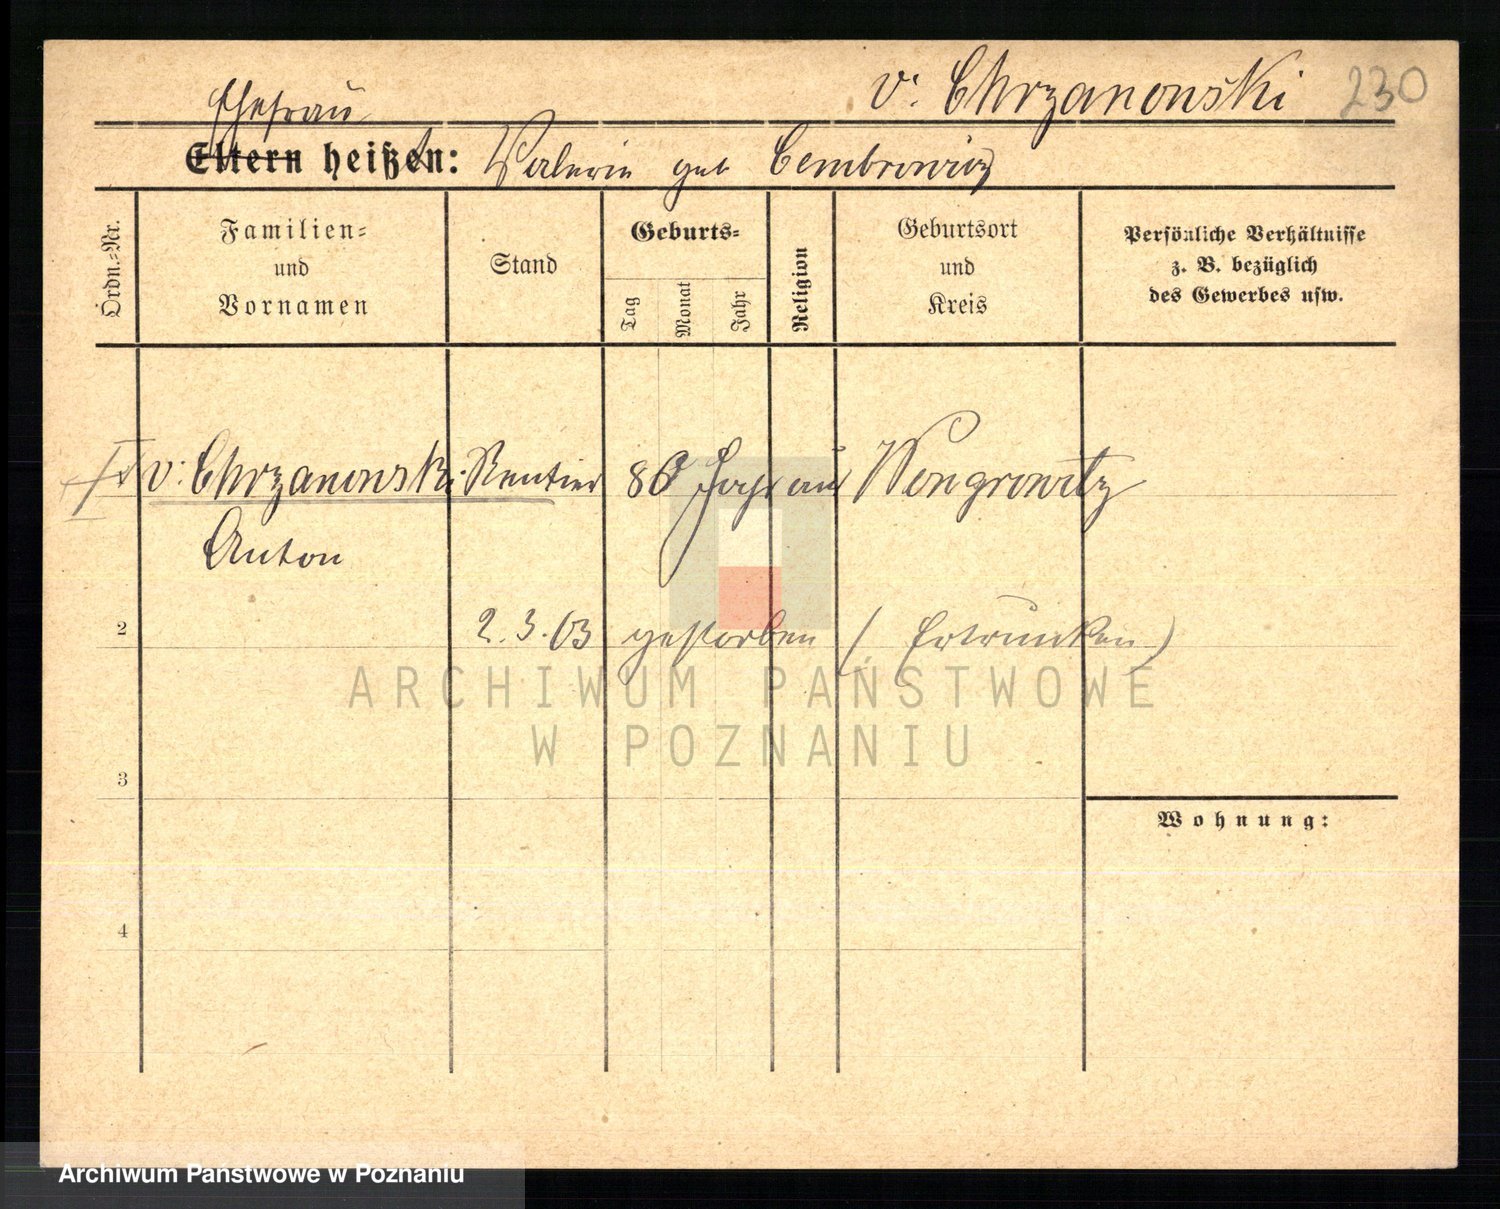 v. Chrzanowski 230
Ehefrau
Eltern heißen: Valerie geb Cembrowicz
Ordn.-Nr.
Familien-
und
Vornamen
Stand
Geburts-
Tag
Monat
Jahr
Religion
Geburtsort
und
Kreis
Persönliche Verhältnisse
z. B. bezüglich
des Gewerbes usw.
v. Chrzanowski Rentier 80 Jahr aus Wongrowitz
Anton
2
2. 3. 03 gestorben (Ertrunken)
3
Wohnung:
4
ARCHIWUM PAŃSTWOWE
W POZNANIU
Archiwum Państwowe w Poznaniu